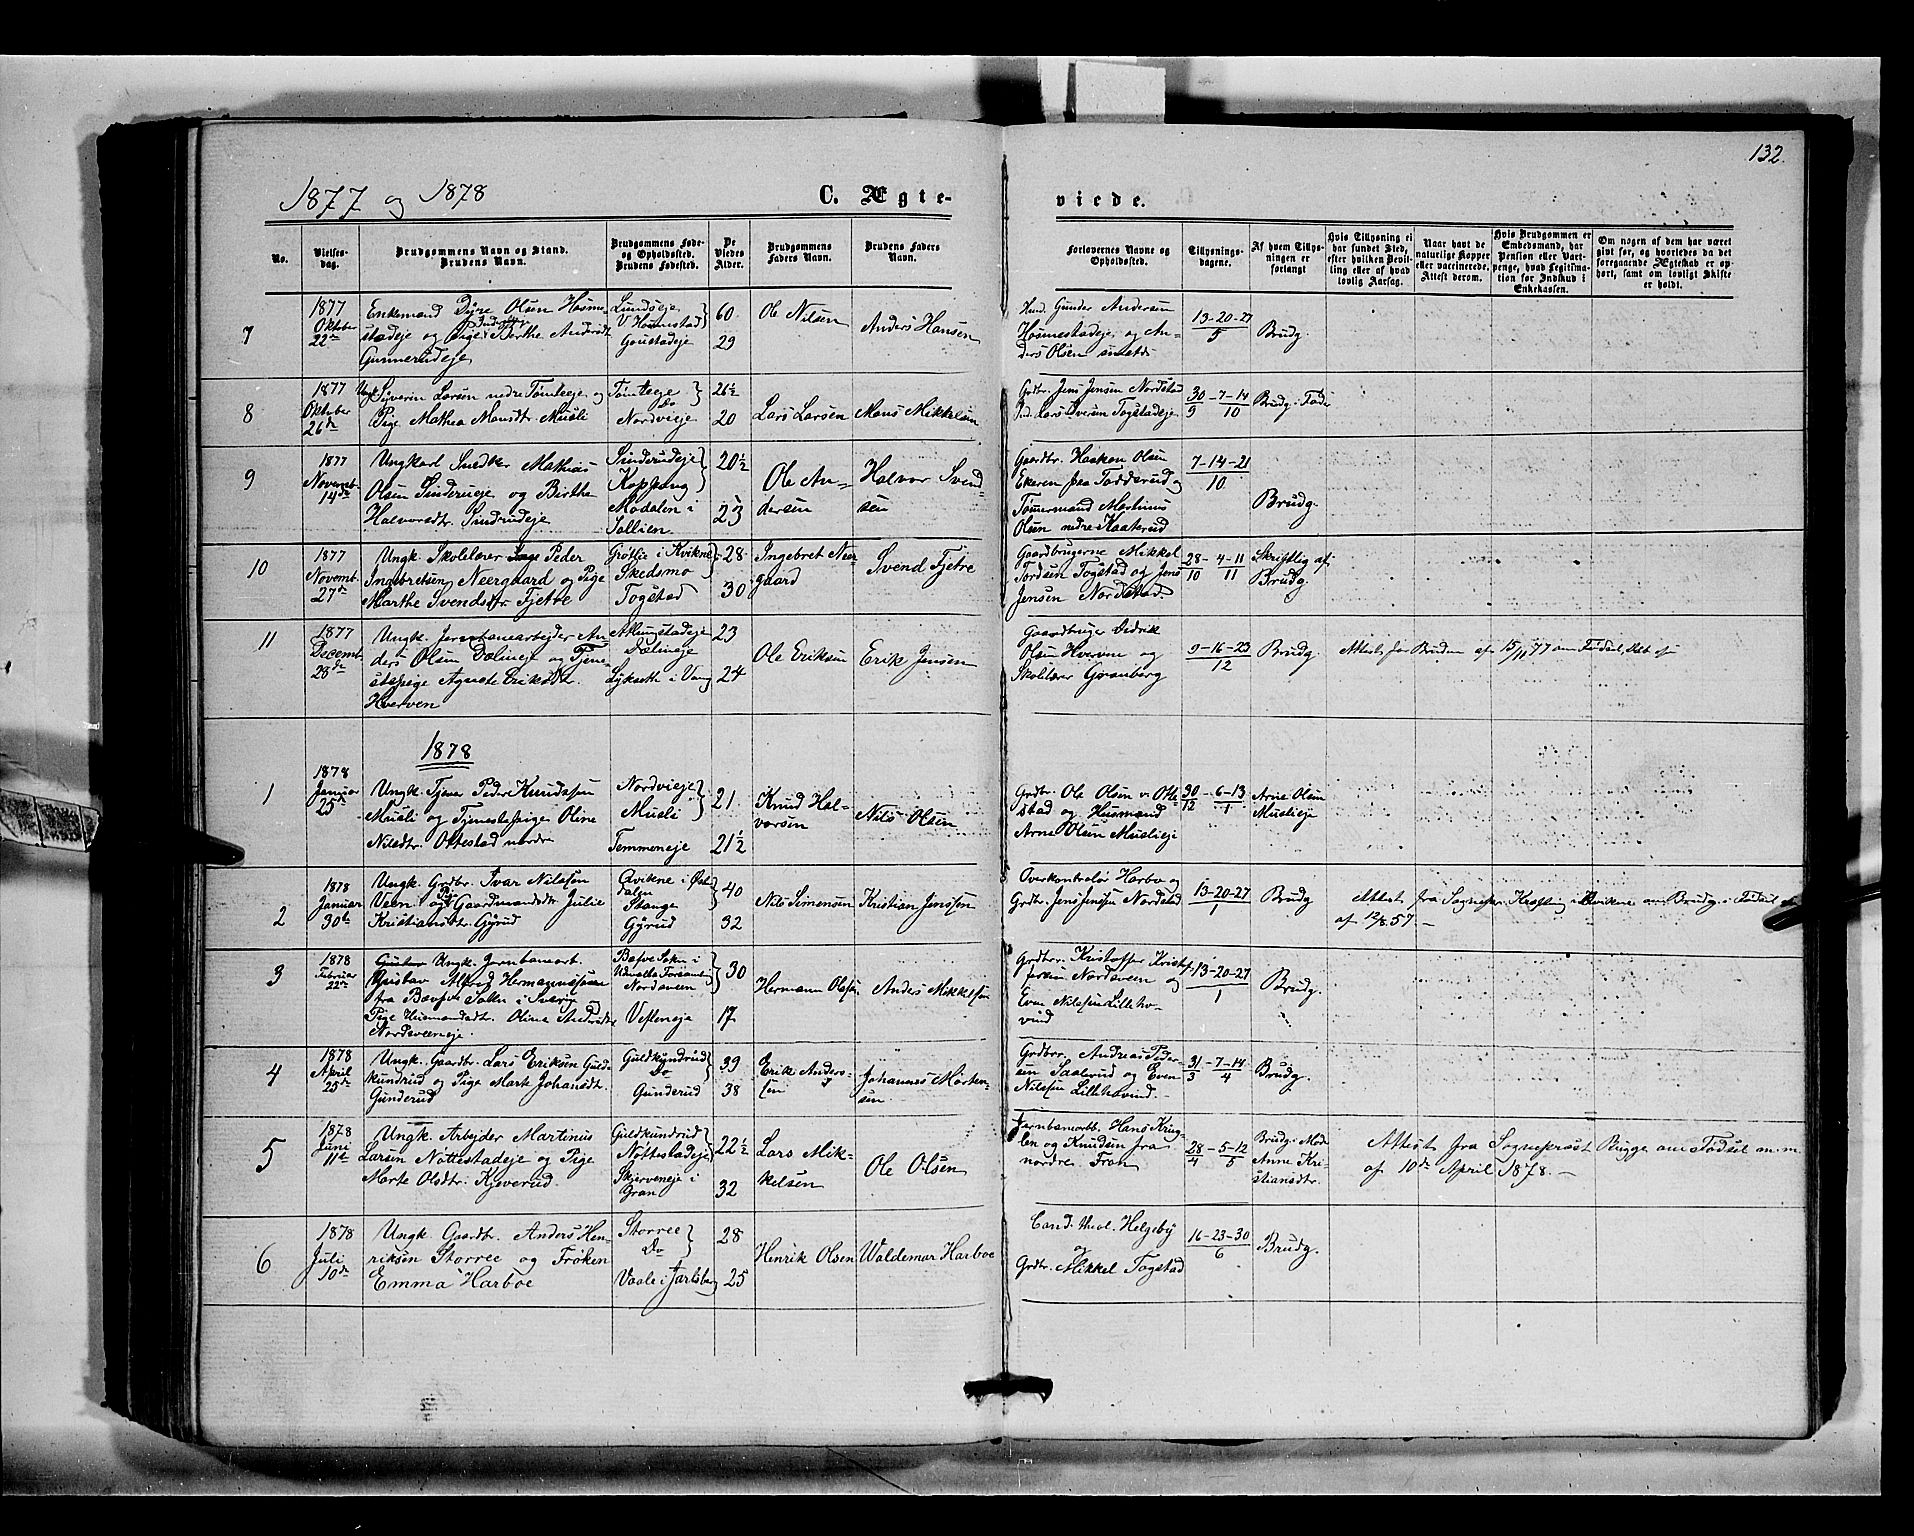 132.
1877 og 1878
C. Ægte-
viede.
No.
Vielses-
dag.
Brudgommens Navn og Stand.
Brudens Navn.
Brudgommens Føde-
og Opholdssted.
Brudens Fødested.
De
Viedes
Alder.
Brudgommens
Faders Navn.
Brudens Faders
Navn.
Forlovernes Navne og
Opholdssted.
Tillysnings-
dagene.
Af hvem Tillys-
ningen er
forlangt
Hvis Tillysning ei
har fundet Sted,
efter hvilken Bevil-
ling eller af hvad
lovlig Aarsag.
Naar havt de
naturlige Kopper
eller vaccinerede.
Attest derom.
Hvis Brudgommen er
Embedsmand, har
Pension eller Vart-
penge, hvad Legitima-
tion for Indskud i
Enkekassen.
Om nogen af dem har været
gift før, og hvorledes da det
foregaaende Ægteskab er op-
hørt, samt om lovligt Skifte
er holdt.
7
1877
Oktober
22de
Enkemand Dyre Olsen Hosme-
stadeje og Pige Berthe Andersdt.
Gunnerudeje
Lundseje
V Hosmestad
Goustadeje
60
29
Ole Nilsen
Anders Hansen
Hmd. Gunder Andersen
Hosmestadeje og An-
ders Olsen smstds
13-20-27
5
Brudg.
8
1877
Oktober
26de
Ungk Syverin Larsen nedre Tømteeje og
Pige Mathea Mansdt. Musli
Tømteeje
Do
Nordvieje
26½
20
Lars Larsen
Mons Mikkelsen
Grdbr. Jens Jensen Nordstad
Lars Iversen Togstadeje
30-7-14
9 10
Brudg.
9
1877
Novemb.
14de
Ungkarl Snedker Mathias
Olsen Sinderueje og Birthe
Halvorsdt. Sindrudeje
Sinderudeje
Koppang
Modalen i
Sollien
20½
23
Ole An-
dersen
Halvor Svend-
sen
Gaardbr. Haaken Olsen
Ekeren fra Fodderud og
Tømmermand Martinus
Olsen nedre Kaaterud
7-14-21
10
Brudg.
10
1877
Novemb.
27de
Ungk. Skolelærer Peder
Ingebretsen Neergaard og Pige
Marthe Svendsdtr. Fjetre
Grøtlie i Kvikne
Skedsmo
Togstad
28
30
Ingebret Neer-
gaard
Svend Fjetre
Gaardbrugerne Mikkel
Tordsen Togstad og Jens
Jensen Nordstad.
28-4-11
10 11
Skriftlig af
Brudg.
11
1877
Decemb.
28de
Ungk. Jernbanearbejder An-
ders Olsen Dælineje og Tjene-
stepige Agnete Eriksdt.
Hverven
Atlungstadeje
Dælineje
Lyksæth i Vang
23
24
Ole Eriksen
Erik Jensen
Gaardbruger Dedrik
Olsen Hverven og
Skolelærer Granberg
9-16-23
12
Brudg.
Attest for Bruden af 15/11 77 om Fødsel, Daab
1878
1
1878
Januar
25de
Ungk. Tjener Peder Knudssen
Musli og Tjenestepige Oline
Nilsdtr. Ottestad nordre
Nordvieje
Musli
Temmeneje
21.
21½
Knud Hal-
vorsen
Nils Olsen
Grdbr. Ole Olsen v: Otte-
stad og Husmand
Arne Olsen Muslieje
30-6-13
12 1
Arne Olsen
Muslieje
2
1878
Januar
30te
Ungk. Grdbr. Ivar Nilssen
Veen og Gaardmandsdt. Julie
Kristiansdt. Gyrud
Qvikne i Øster-
dalen
Stange
Gyrud
40
32
Nils Simensen
Kristian Jenssen
Overkontrolør Harbo og
Grdbr. Jens Jenssen Nordstad
13-20-27
1
Brudg
Attest fra Sognepr. Krefting i Kvikne om Brudg.s Fødsel
af 12/8.57 -
3
1878
Februar
22de
Gustav Ungk. Jernbanearb.
Gustav Alfred Hermannssen
fra Bæfve Sokn i Sverig
Pige Husmandsdt. Oline Andersdtr
Nordsveeneje.
Bæfve Sokn i
Udevalla Forsamling
Nordsveen
Vesteneje
30
17.
Hermann Olssen
Anders Mikkelsen
Grdbr. Kristoffer Kristof-
fersen Nordsveen og
Even Nilssen Lilleho-
vind
13-20-27
1
Brudg.
4
1878
April
25de
Ungk. Gaardbr. Lars Eriksen Guld-
kundrud og Pige Marte Johansdt.
Gunderud
Guldkundrud
Do
Gunderud
39
38
Erik Anders-
sen
Johannes Morten-
sen
Grdbr. Andreas Peder-
sen Saalerud og Even
Nilssen Lillehovind.
31-7-14
3 4
Brudg.
5
1878
Juni
11te
Ungk. Arbejder Martinus
Larsen Nøttestadeje og Pige
Marte Olsdtr. Kjeverud.
Guldkundrud
Nøttestadeje
Skjerveneje i
Gran
22½
32
Lars Mik-
kelsen
Ole Olsen
Jernbanearb. Hans Krug-
len og Knudsen fra
nordre Fron
28-5-12
4 5
Brudg. Mod.
Anne Kri-
stiansdtr.
Attest fra Sogneprest Brugge om Fødsel m.m.
af 10de April 1878. -
6
1878
Juli
10de
Ungk. Gaardbr. Anders Hen-
riksen Storree og Frøken
Emma Harboe
Storree
Do
Vaale i Jarlsberg
28
25
Henrik Olsen
Waldemar Harboe
Cand. theol. Helgeby
og
Grdbr. Mikkel Togstad
16-23-30
6
Brudg.